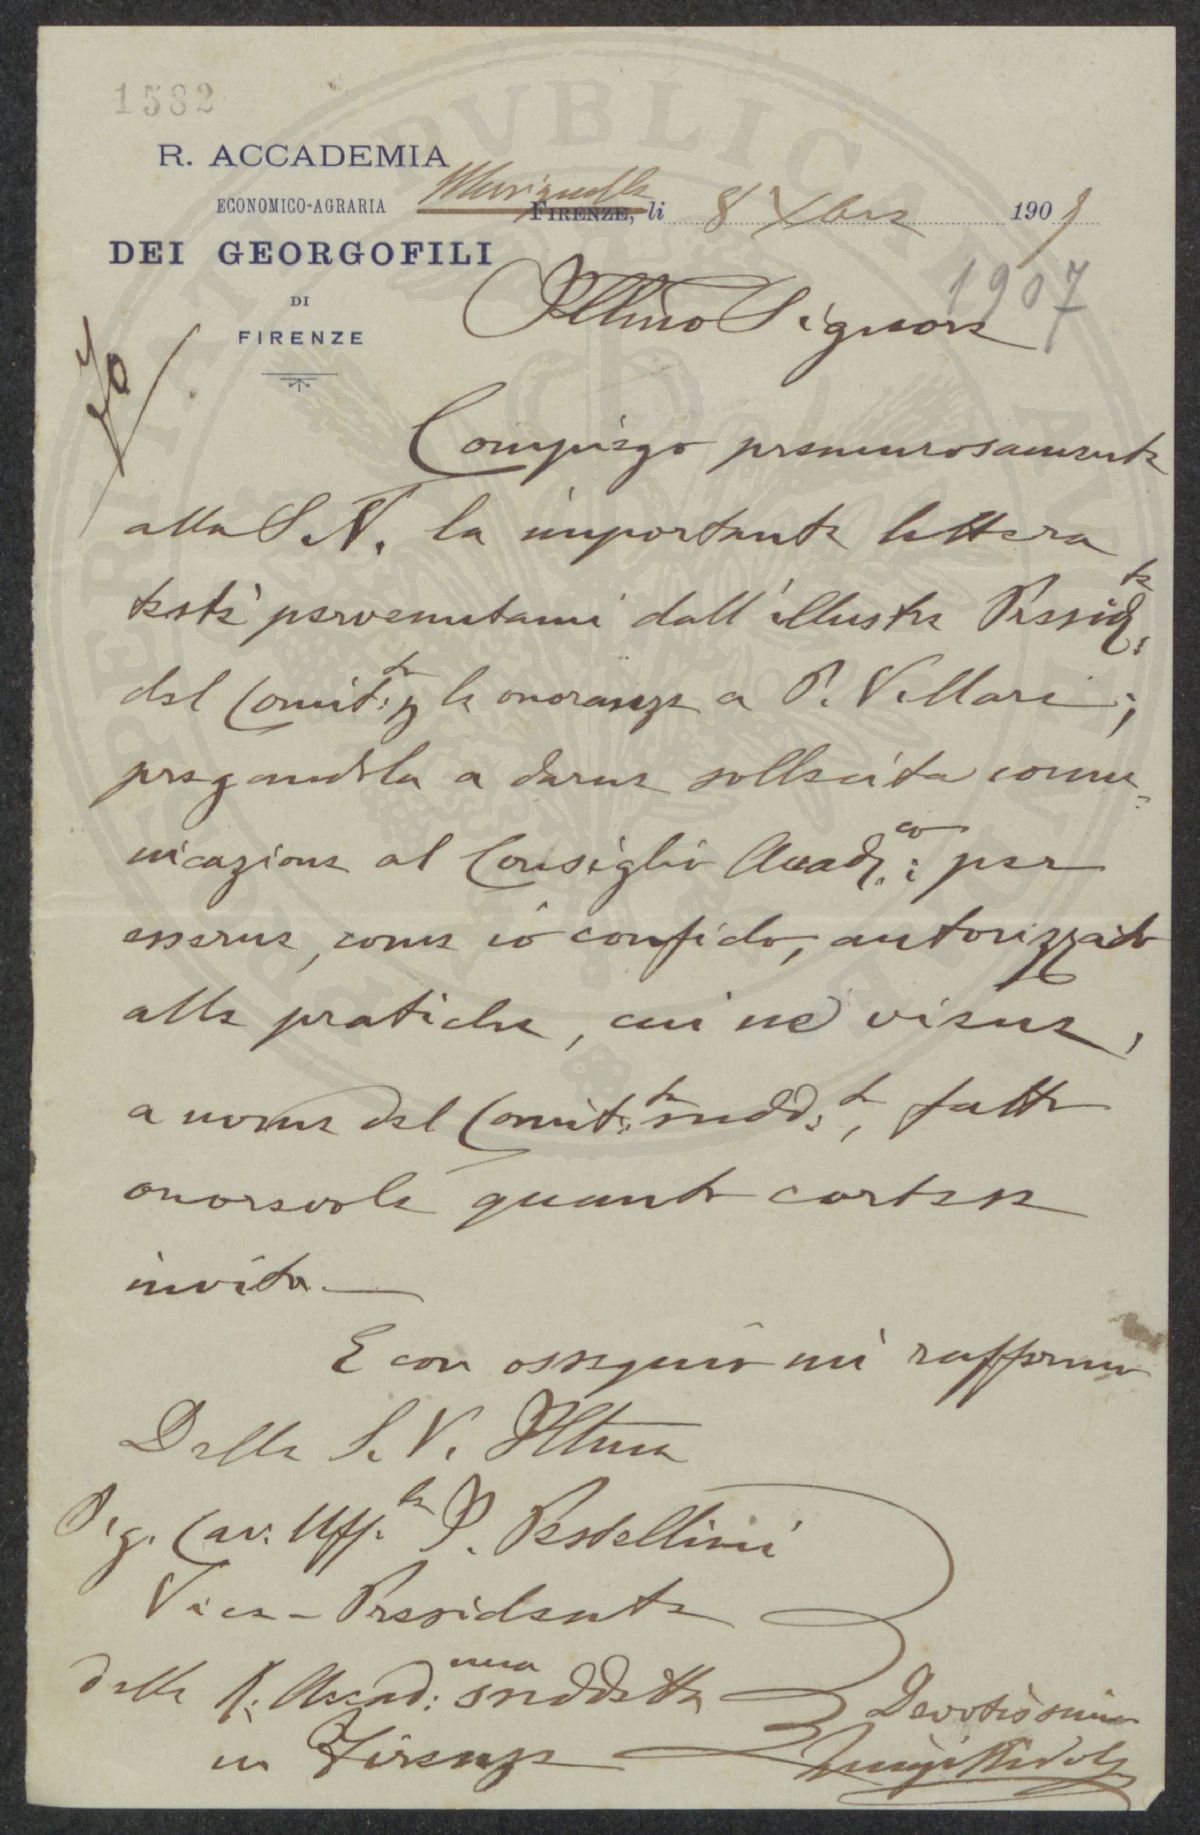 1582
R. ACCADEMIA
ECONOMICO-AGRARIA
DEI GEORGOFILI
DI
FIRENZE
Marignolle
FIRENZE, li 8 Xbre 190
1907
Illmo Signore
Compiego premurosamente
alla S. V. la importante lettera
testè pervenutami dall'illustre Presid.te
del Comit.to p le onoranze a P. Villari;
pregandola a darne sollecita comu-
nicazione al Consiglio Accad.co: per
esserne, come io confido, autorizzato
alle pratiche, cui ne viene,
a nome del Comit.to sudd.to, fatto
onorevole quanto cortese
invito.—
E con ossequio mi raffermo
Della S. V. Illma
Sig. Cav. Uff.le P. Pestellini
Vice-Presidente
della R. Accad.mia suddetta
in Firenze
Devotissimo
Luigi Ridolfi